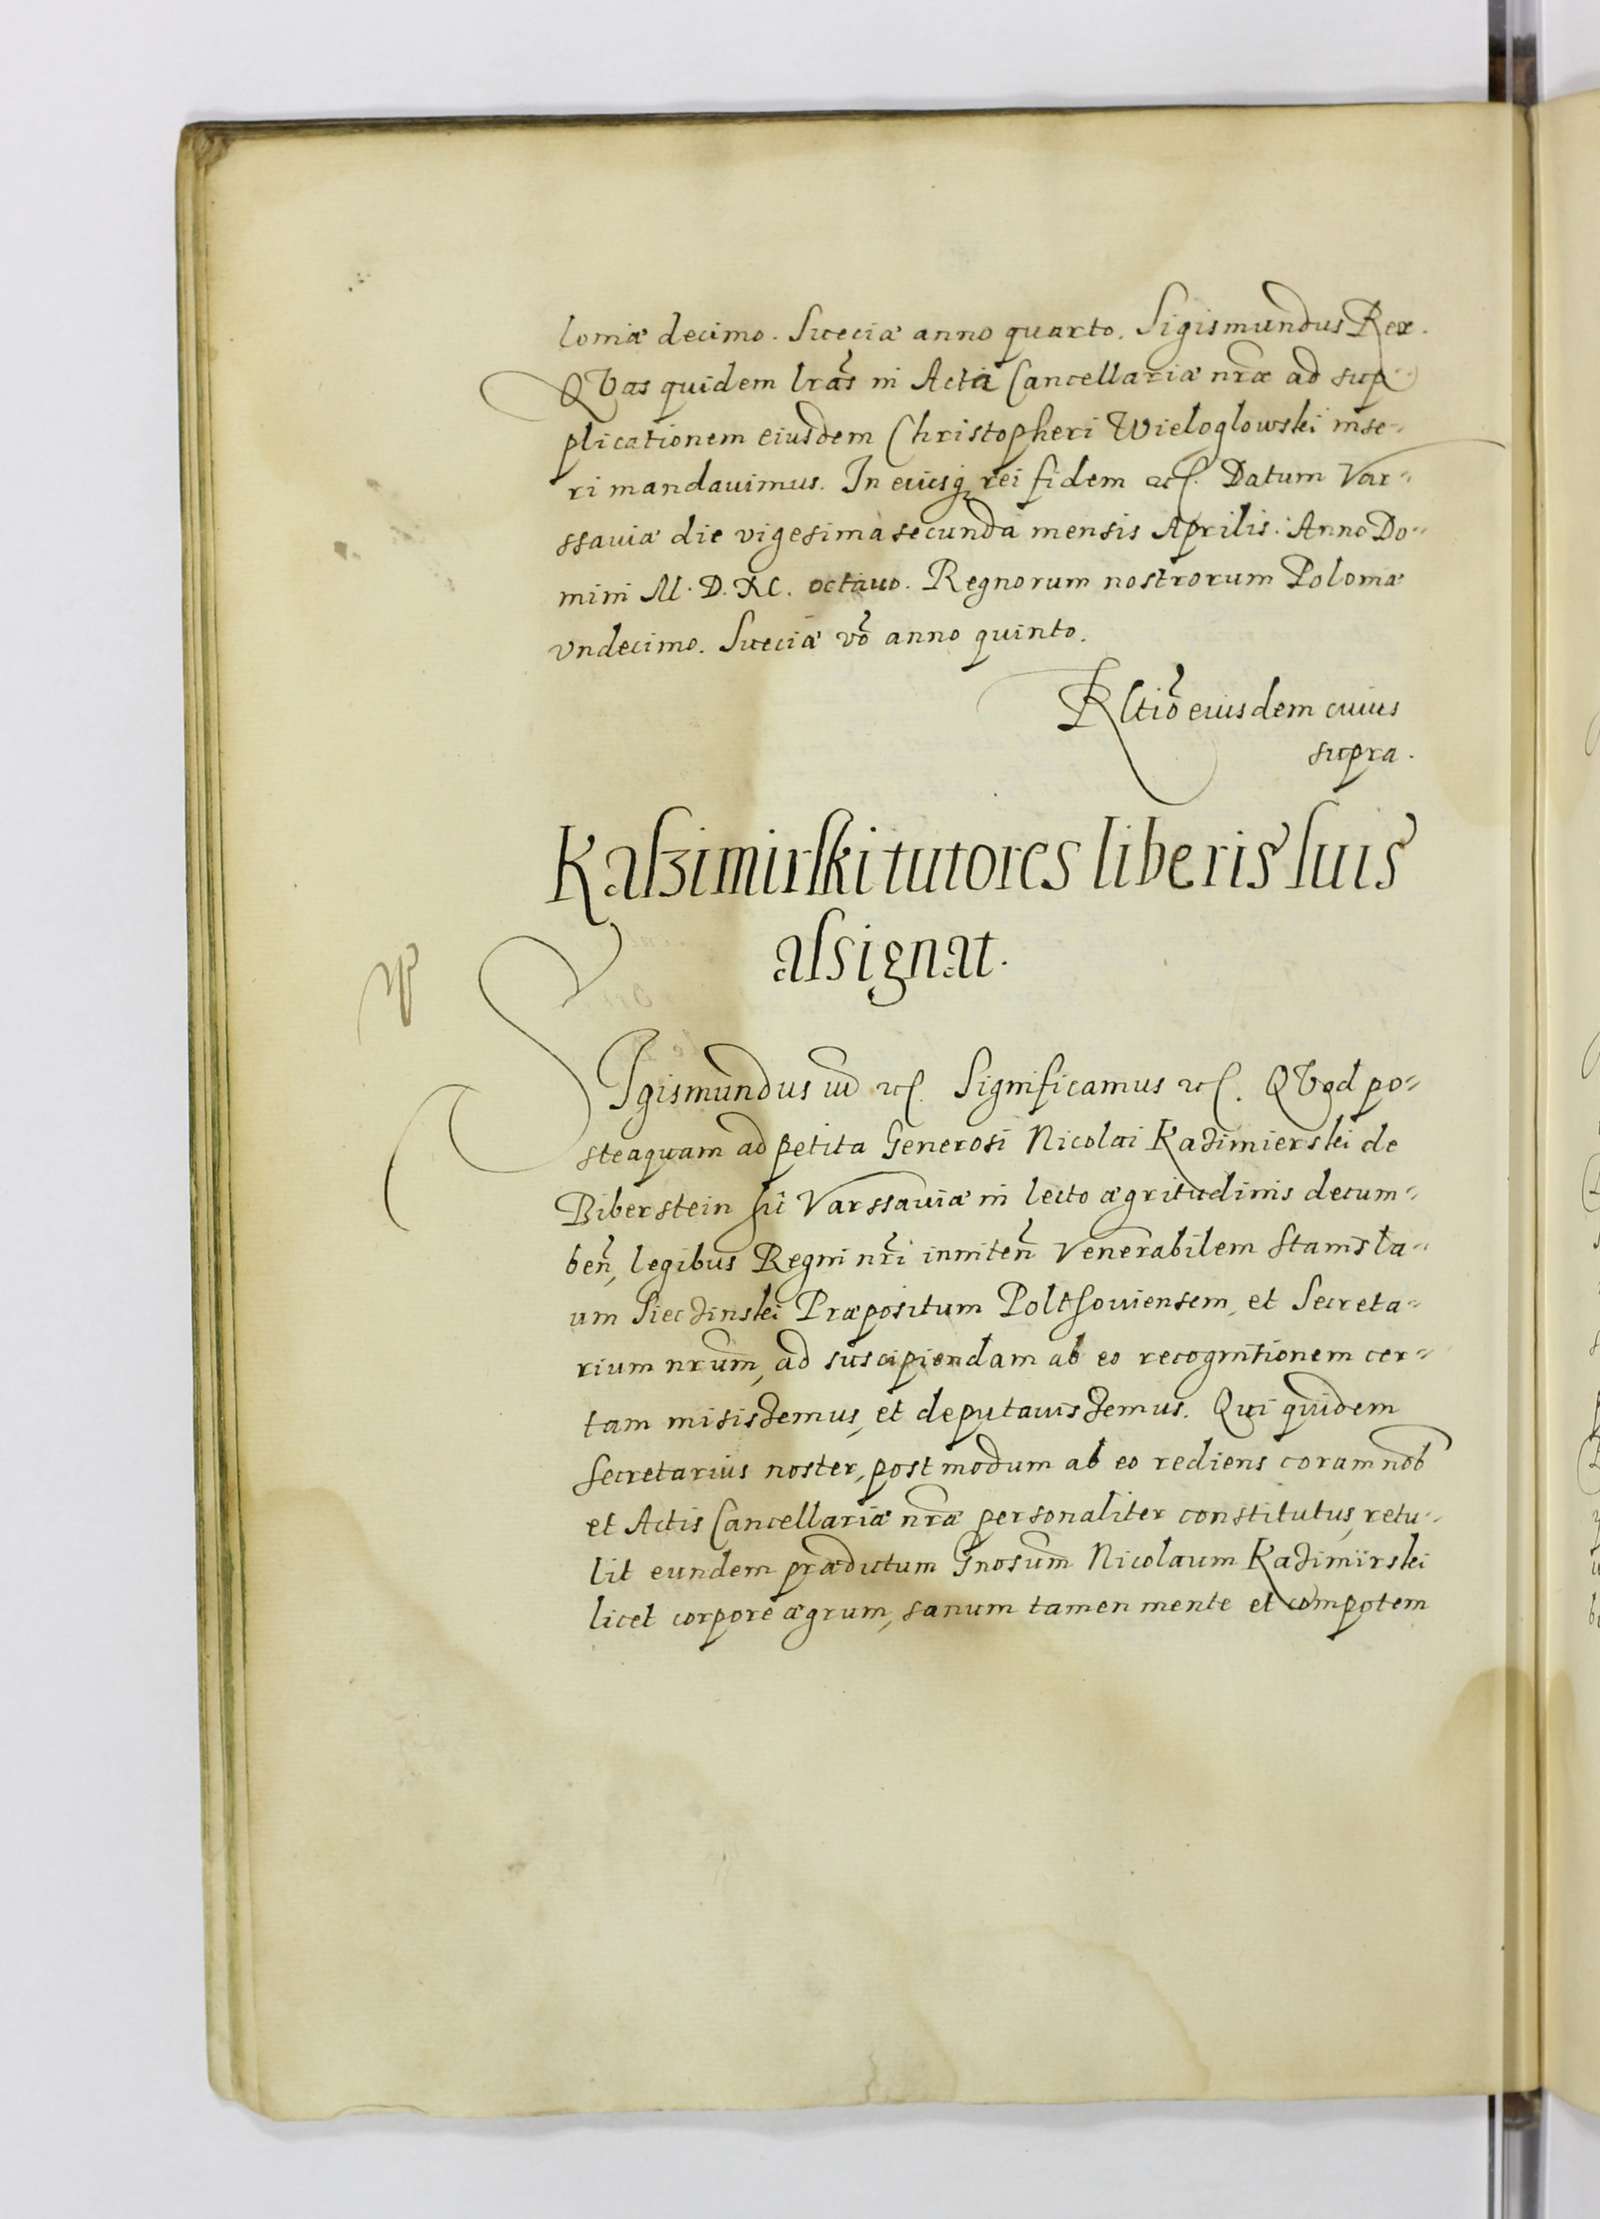 loniæ decimo. Sueciæ anno quarto. Sigismundus Rex.
QVas quidem lrãs in Acta Cancellariæ nræ ad sup
plicationem eiusdem Christopheri Wieloglowski inse-
ri mandauimus. In cuiusq rei fidem etc. Datum Var-
ssauiæ die vigesima secunda mensis Aprilis. Anno Do-
mini M. D. XC. octauo. Regnorum nostrorum Poloniæ
vndecimo. Sueciæ võ anno quinto.
Rltiõ eiusdem cuius
supra.
Kaszimirski tutores liberis suis
assignat.
SIgismundus etc. Significamus etc. QVod po-
steaquam ad petita Generosi Nicolai Kazimierski de
Biberstein hic Varssauiæ in lecto ægritudinis decum-
beñ, legibus Regni nri inniteñ Venerabilem Stanisla-
um Sieczinski Præpositum Poltouiensem, et Secreta-
rium nrum, ad suscipiendam ab eo recognitionem cer-
tam misissemus, et deputauissemus. Qui quidem
Secretarius noster, post modum ab eo rediens coram nob
et Actis Cancellariæ nræ personaliter constitutus, retu-
lit eundem prædictum Gnosum Nicolaum Kazimirski
licet corpore ægrum, sanum tamen mente et compotem